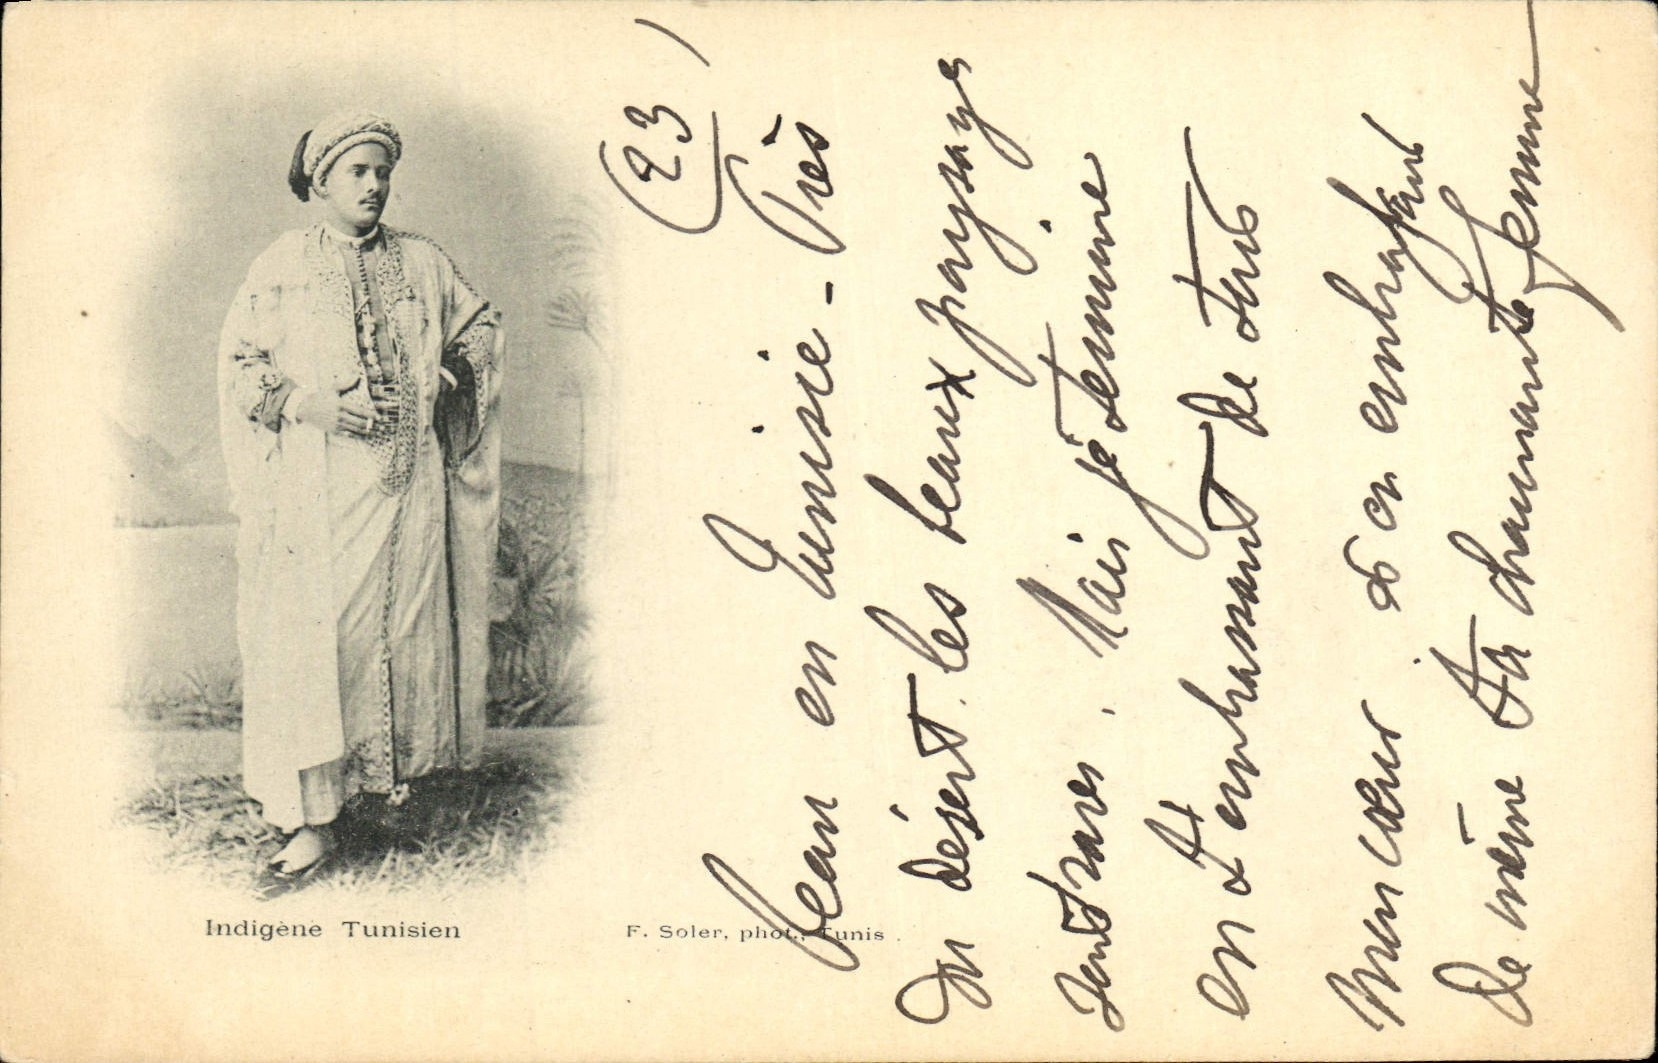 Indigène Tunisien
F. Soler, phot., Tunis
(23)
bean en Tunisie - Près
du désert les beaux paysages
sont rares. Mais je termine
en t'embrassant de tout
mon cœur et en embrassant
de même ta charmante femme